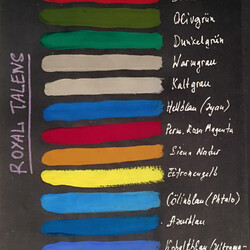 ROYAL TALENS
Olivgrün
Dunkelgrün
Warmgrau
Kaltgrau
Hellblau (Cyan)
Perm. Rosa Magenta
Siena Natur
Zitronengelb
Cölinblau (Phtalo)
Azurblau
Kobaltblau (Ultrama-